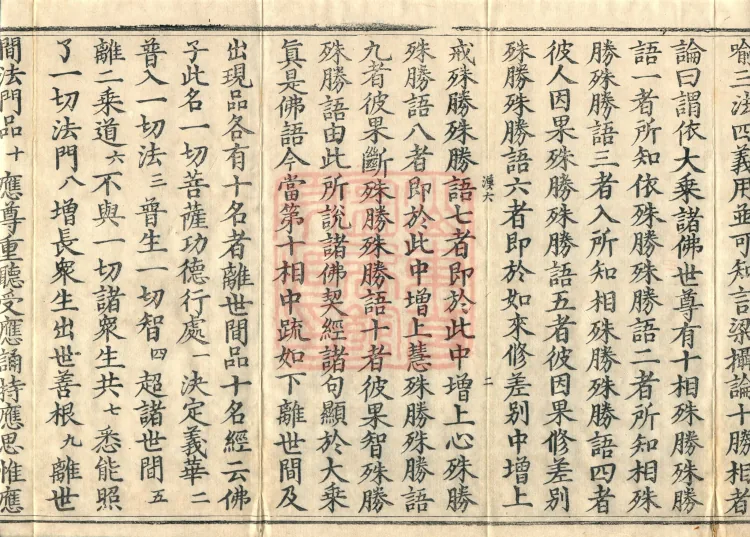 喻三法四義用並可知言梁攝論十勝相者
論曰謂依大乘諸佛世尊有十相殊勝殊勝
語一者所知依殊勝殊勝語二者所知相殊
勝殊勝語三者入所知相殊勝殊勝語四者
彼人因果殊勝殊勝語五者彼因果修差別
殊勝殊勝語六者即於如來修差別中增上
二
戒殊勝殊勝語七者即於此中增上心殊勝
殊勝語八者即於此中增上慧殊勝殊勝語
九者彼果斷殊勝殊勝語十者彼果智殊勝
殊勝語由此所說諸佛契經諸句顯於大乘
真是佛語今當第十相中疏如下離世間及
出現品各有十名者離世間品十名經云佛
子此名一切菩薩功德行處一決定義華二
普入一切法三普生一切智四超諸世間五
離二乘道六不與一切諸衆生共七悉能照
了一切法門八增長衆生出世善根九離世
間法門品十應尊重聽受應誦持應思惟應